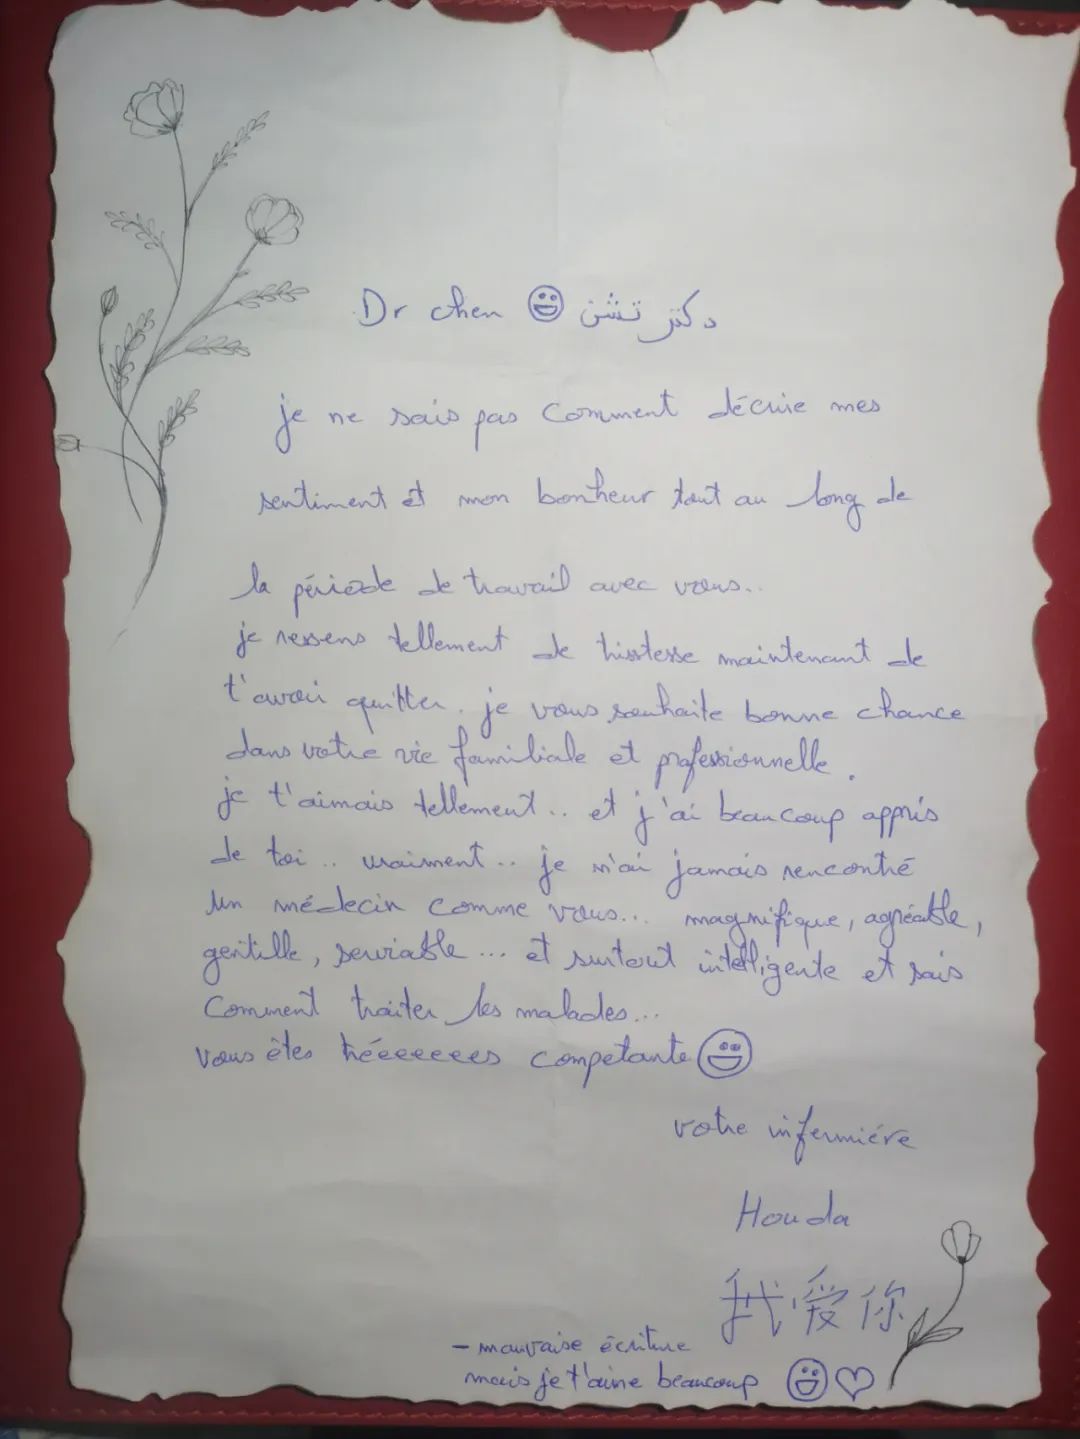 Dr chen 😃 دكتر تشن
je ne sais pas Comment décrire mes
sentiment et mon bonheur tout au long de
la période de travail avec vous..
je ressens tellement de tristesse maintenant de
t'avoir quitter. je vous souhaite bonne chance
dans votre vie familiale et professionnelle.
je t'aimais tellement.. et j'ai beaucoup appris
de toi.. vraiment.. je n'ai jamais rencontré
un médecin comme vous... magnifique, agréable,
gentille, serviable... et surtout intelligente et sais
Comment traiter les malades...
vous êtes tréeeeeees competante 😃
votre infermiére
Houda
我爱你
- mauvaise écriture
mais je t'aime beaucoup 😃♡